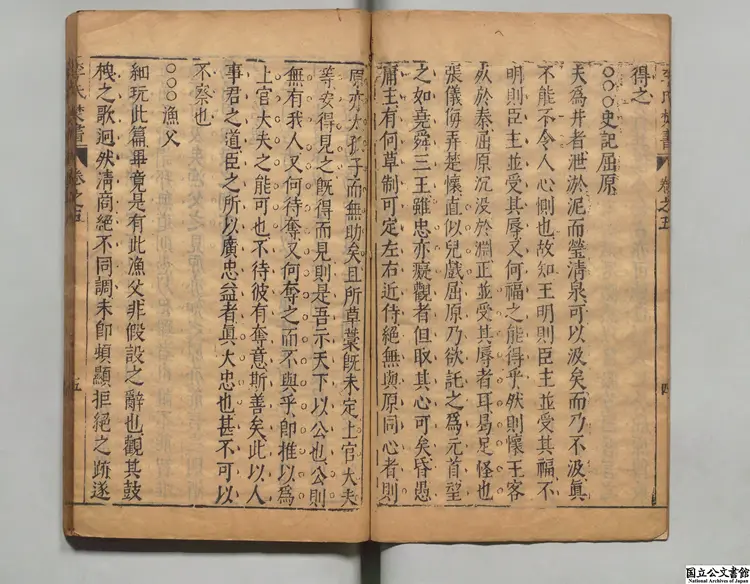 李氏焚書　卷之五　四
得之
○○○史記屈原
夫為井者泄淤泥而瑩清泉可以汲矣而乃不汲眞
不能不令人心惻也故知王明則臣主並受其福不
明則臣主並受其辱又何福之能得乎然則懷王客
死於秦屈原沉没於淵正並受其辱者耳曷足怪也
張儀侮弄楚懷直似兒戲屈原乃欲託之爲元首望
之如堯舜三王雖忠亦癡觀者但取其心可矣昏愚
庸主有何草制可定左右近侍絕無與原同心者則
原亦太孤子而無助矣且所草藁既未定上官大夫
等安得見之既得而見則是吾示天下以公也公則
無有我人又何待奪又何奪之而不與乎即推以爲
上官大夫之能可也不待彼有奪意斯善矣此以人
事君之道臣之所以廣忠益者眞大忠也甚不可以
不察也
○○○漁父
細玩此篇畢竟是有此漁父非假設之辭也觀其鼓
枻之歌迥然清商絕不同調未即頓顯拒絕之跡遂
李氏焚書　卷之五　五
国立公文書館
National Archives of Japan